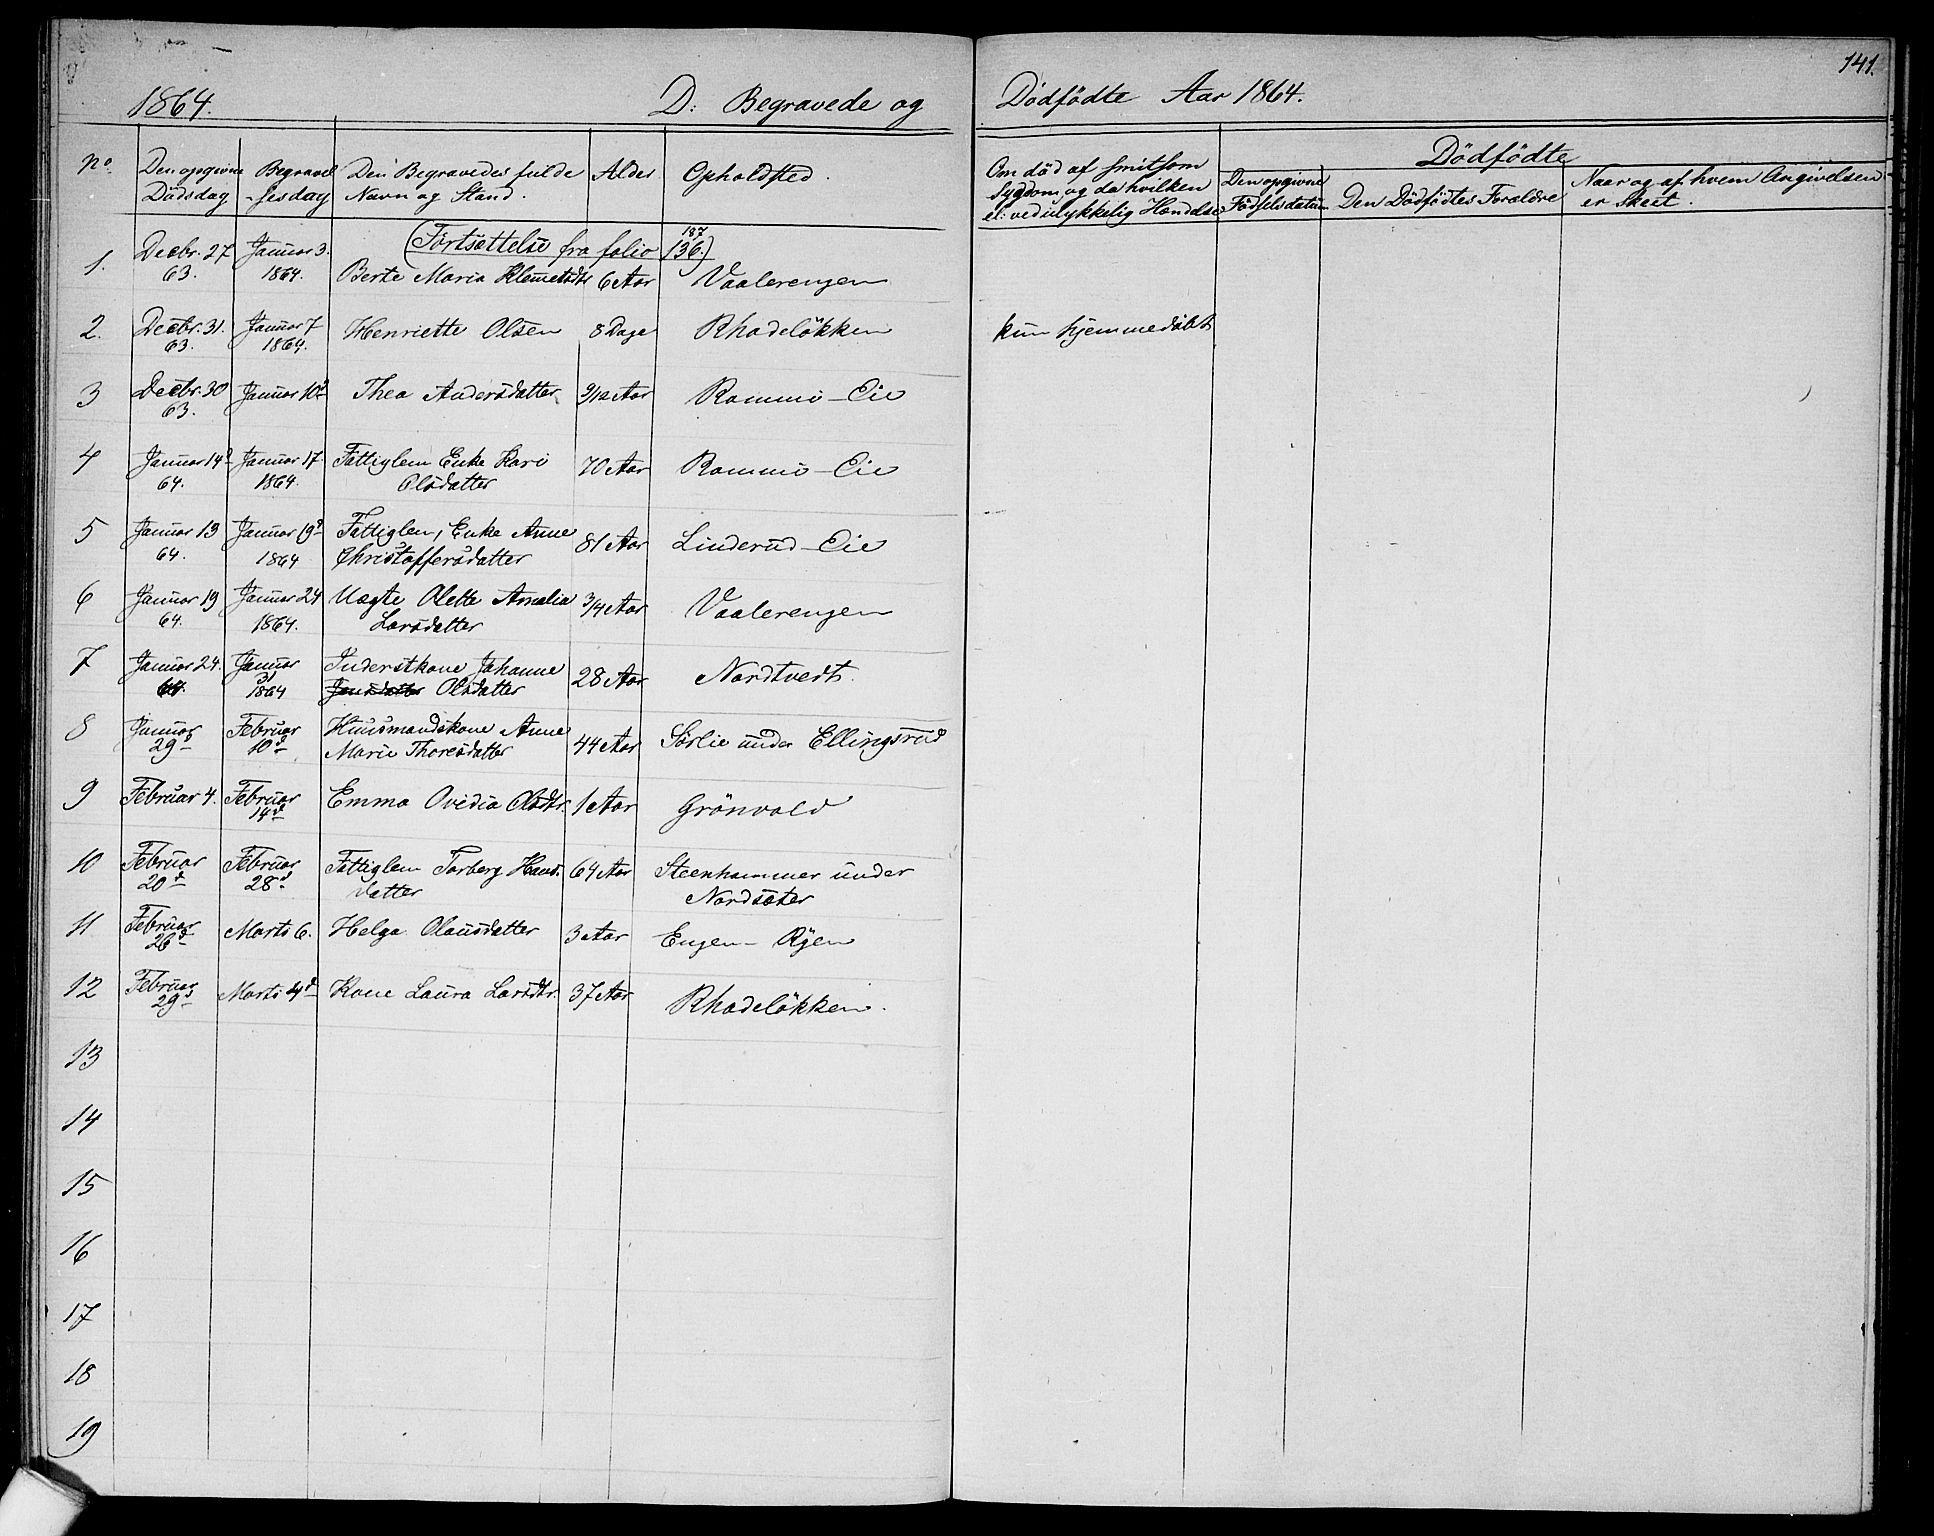 141.
1864. D: Begravede og Dødfødte Aar 1864.
No. Den opgivne Dødsdag Begravelsesdag Den Begravedes fulde Navn og Stand. Alder Opholdsted.
Om død af smitsom Sygdom, og da hvilken el: ved ulykkelig Hændelse
Dødfødte
Den opgivne Fødselsdatum Den Dødfødtes Forældre Naar og af hvem Angivelsen er skeet.
(Fortsættelse fra folio 136.)
187
1. Decbr. 27 Januar 3.
63. 1864. Berte Maria Klemetsdtr 6 Aar Vaalerengen
2. Decbr. 31. Januar 7 Henriette Olsen 8 Dage Rhodeløkken kun hjemmedøbt
63. 1864.
3 Decbr. 30 Januar 10d Thea Andersdatter 9/12 Aar Rommo-Eie
63.
4 Januar 14d Januar 17 Fattiglem Enke Kari 70 Aar Rommo-Eie
64. 1864. Olsdatter
5 Januar 13 Januar 19d Fattiglem, Enke Anne 81 Aar Linderud-Eie
64. 1864 Christoffersdatter
6 Januar 19 Januar 24 Uægte Olette Amalia 3/4 Aar Vaalerengen
64. 1864. Larsdatter
7 Januar 24. Januar Inderstkone Johanne 28 Aar Nordtvedt.
64. 31 1864 Jensdatter Olsdatter
8 Januar Februar Huusmandskone Anne 44 Aar Sørlie under Ellingsrud
29d 10d Marie Thoresdatter
9 Februar 4. Februar Emma Ovidia Olsdtr. 1 Aar Grönvold
14d
10 Februar Februar Fattiglem Torberg Hans- 64 Aar Steenhammer under
20d 28d datter Nordsæter
11 Februar Marts 6. Helga Olausdatter 3 Aar Engen- Ryen
26d
12 Februar Marts 4d Kone Laura Larsdtr. 37 Aar Rhodeløkken.
29d
13
14
15
16
17
18
19